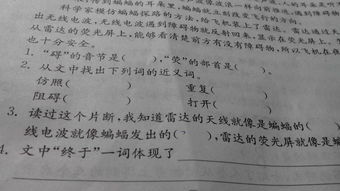 得到蝙蝠的耳朵里,蝙蝠就立刻改变飞行的方向。
科学家模仿蝙蝠探路的方法,给飞机装上了雷达。雷达通过天
出无线电波,无线电波遇到障碍物就反射回来,显示在荧光屏上。
从雷达的荧光屏上,能够看清楚前方有没有障碍物,所以飞机在夜
也十分安全。
1. “碍”的音节是( ),“荧”的部首是( )。
2. 从文中找出下列词的近义词。
仿照( ) 重复( )
阻碍( ) 打开( )
3. 读过这个片断,我知道雷达的天线就像是蝙蝠的(
线电波就像蝙蝠发出的( ),雷达的荧光屏就像是蝙
4. 文中“终于”一词体现了